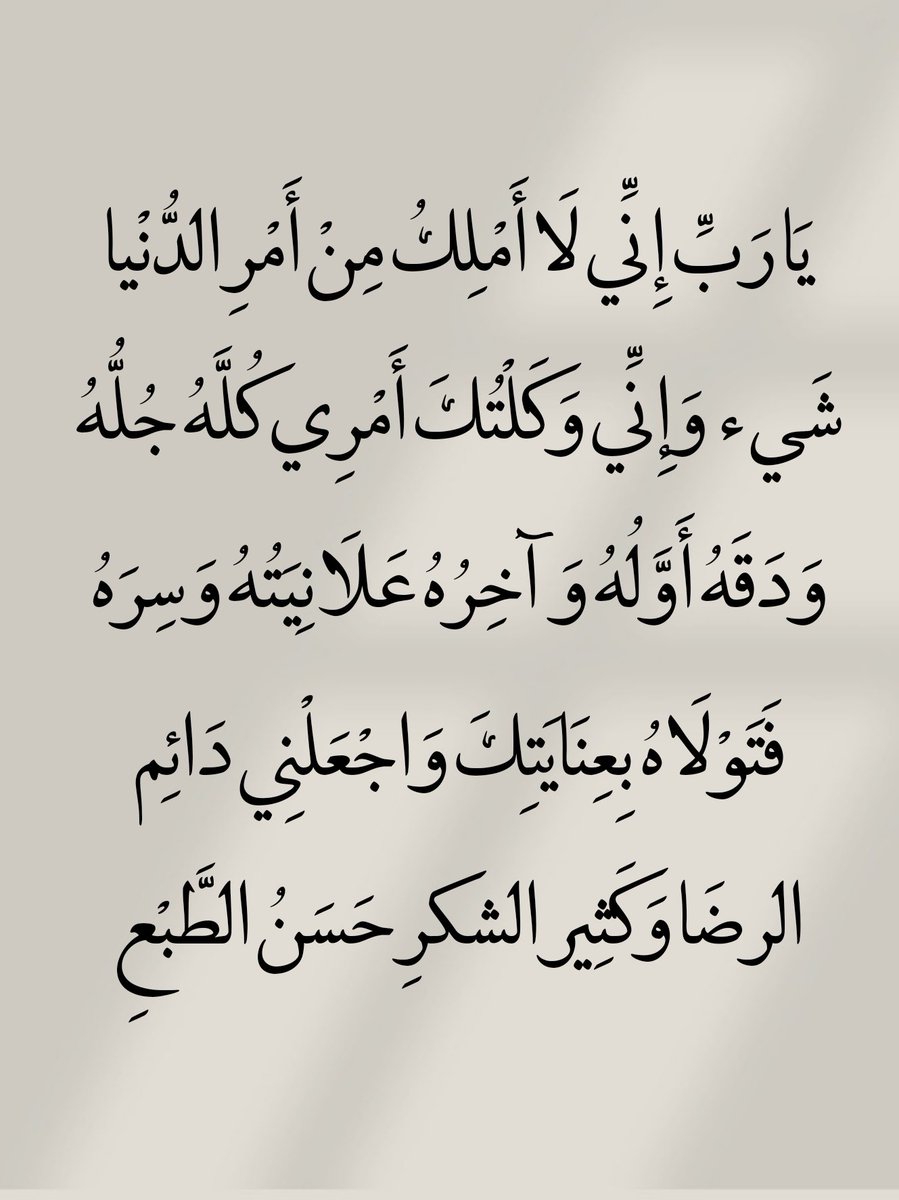 يَارَبِّ إِنِّي لَا أَمْلِكُ مِنْ أَمْرِ الدُّنْيا
شَيء وَإِنِّي وَكَلْتُكَ أَمْرِي كُلَّهُ جُلُّهُ
وَدَقَهُ أَوَّلُهُ وَآخِرُهُ عَلَانِيَتُهُ وَسِرَهُ
فَتَوْلَاهُ بِعِنَايَتِكَ وَاجْعَلْنِي دَائِم
الرضَا وَكَثِير الشكرِ حَسَنُ الطَّبْعِ